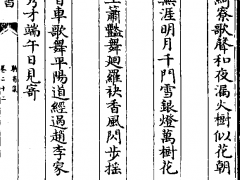 綺寮歌聲和夜漏火樹似花朝
無涯明月千門雪銀燈萬樹花
上蕭豔舞迴羅袂香風閃步摇
香車歌舞平陽道經過趙李家
乃才端午日見寄
卷二十